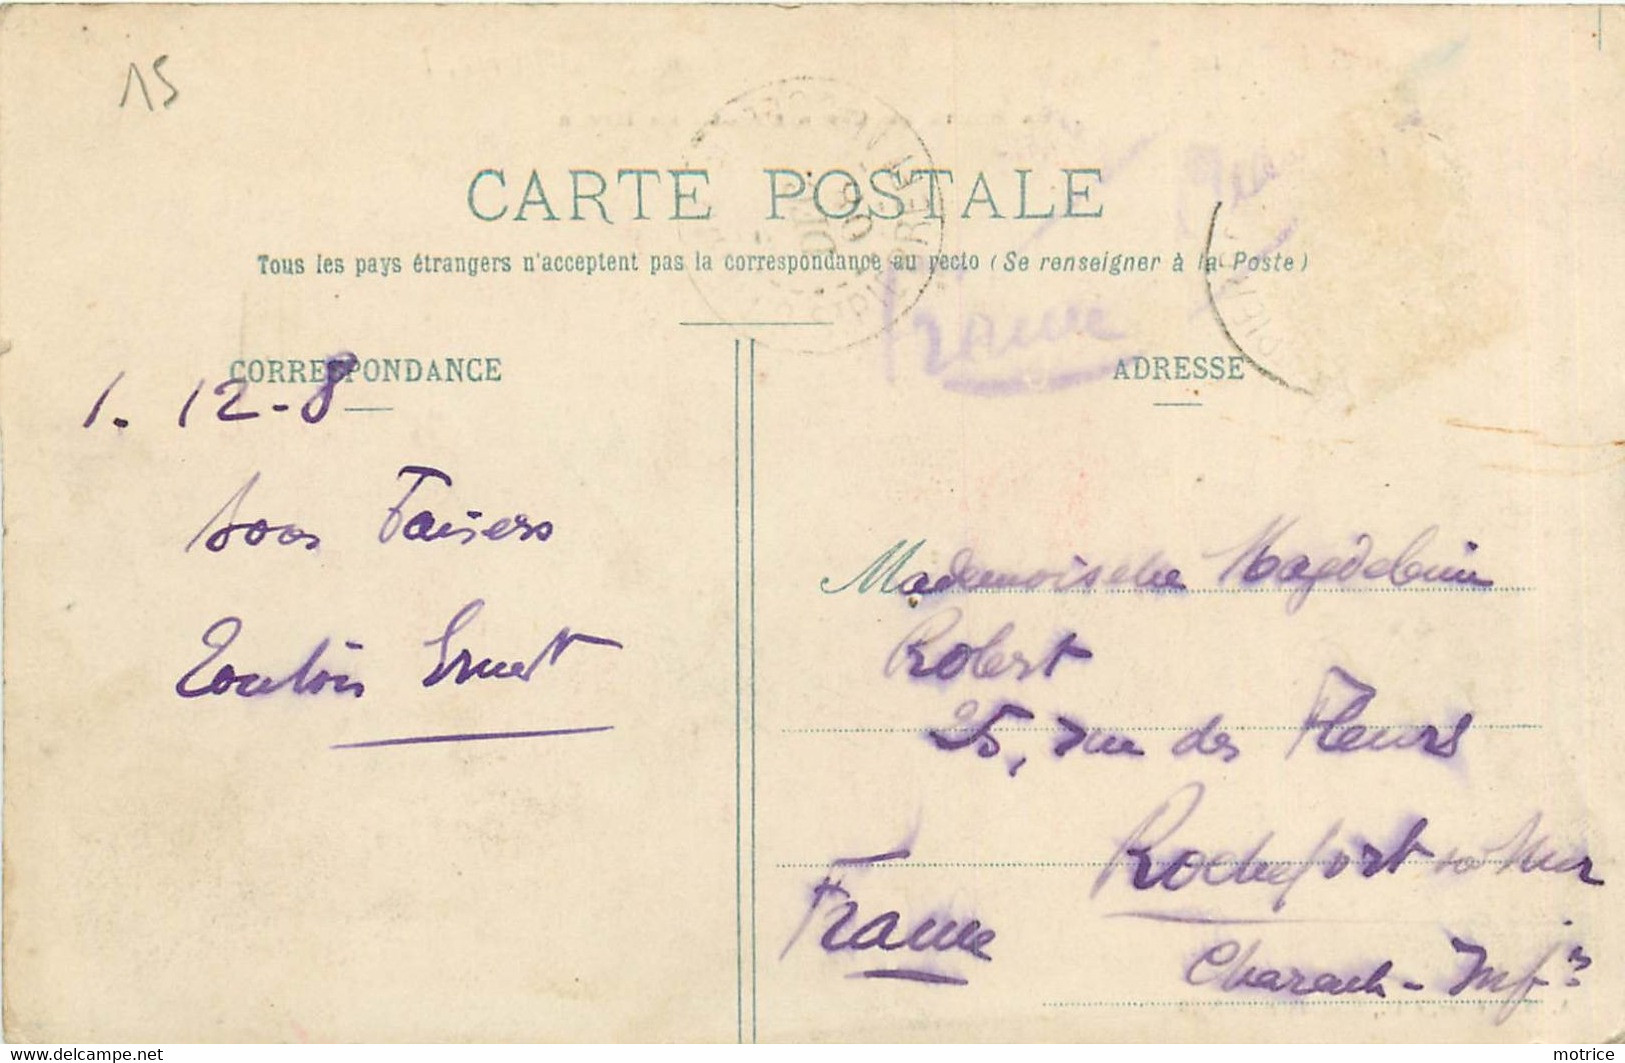 15
CARTE POSTALE
Tous les pays étrangers n'acceptent pas la correspondance au recto (Se renseigner à la Poste)
France
CORRESPONDANCE
ADRESSE
1. 12-8
Bons Baisers
Ernest
Mademoiselle Magdeleine
Robert
25, rue des Fleurs
Rochefort s/ Mer
France
Charente-Infre
motrice